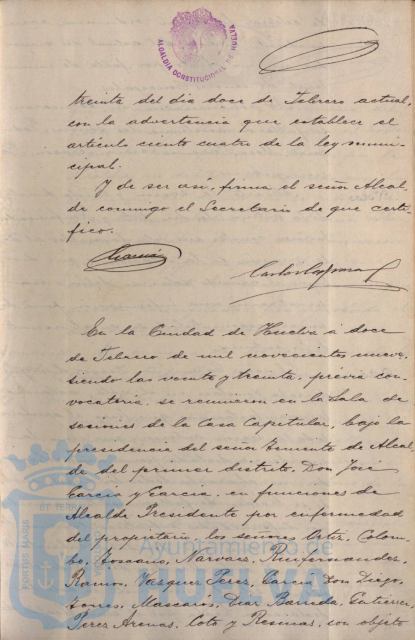 ALCALDIA CONSTITUCIONAL DE HUELVA
treinta del dia doce de Febrero actual,
con la advertencia que establece el
articulo ciento cuatro de la ley muni-
cipal.
Y de ser así, firma el señor Alcal-
de conmigo el Secretario de que certi-
fico.
García
En la Ciudad de Huelva á doce
de Febrero de mil novecientos nueve,
siendo las veinte y treinta, previa con-
vocatoria, se reunieron en la Sala de
sesiones de la Casa Capitular, bajo la
presidencia del señor Teniente de Alcal-
de del primer distrito, Don José
Garcia y Garcia, en funciones de
Alcalde Presidente por enfermedad
del propietario, los señores Ortiz, Colom-
bo, Toscano, Narvaez, Ruifernandez,
Ramos, Vazquez Perez, Garcia Don Diego,
Torres, Mascaros, Diaz Barreda, Gutierrez,
Perez Arenas, Coto y Resinas, con objeto
PORTUS MARIS
Ayuntamiento de
HUELVA